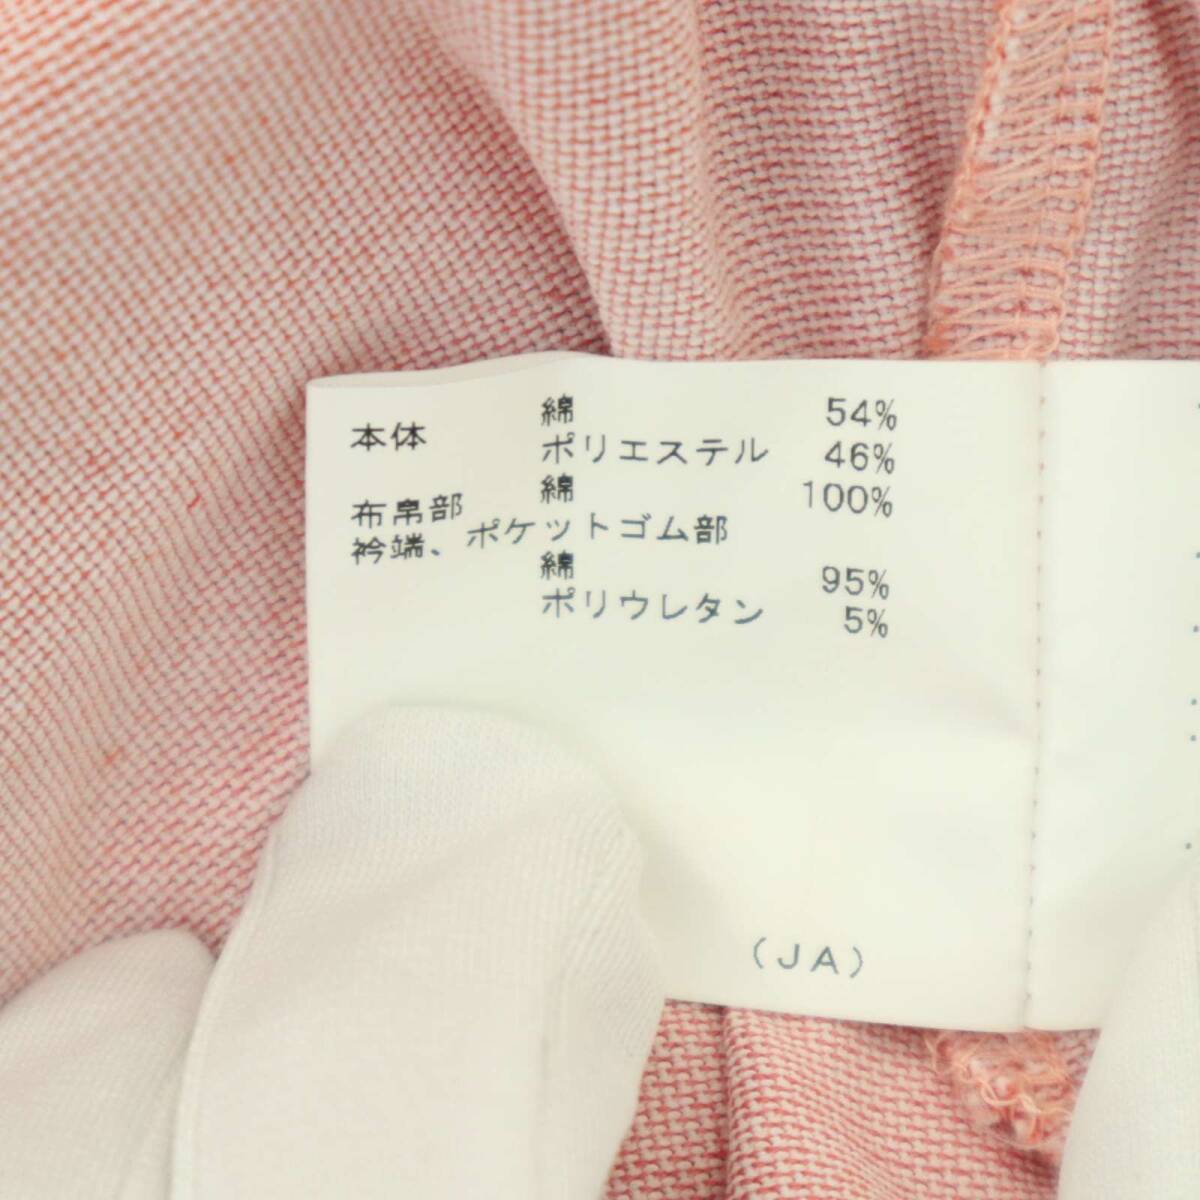 本体 綿 54%
ポリエステル 46%
布帛部 綿 100%
衿端、ポケットゴム部
綿 95%
ポリウレタン 5%
(JA)